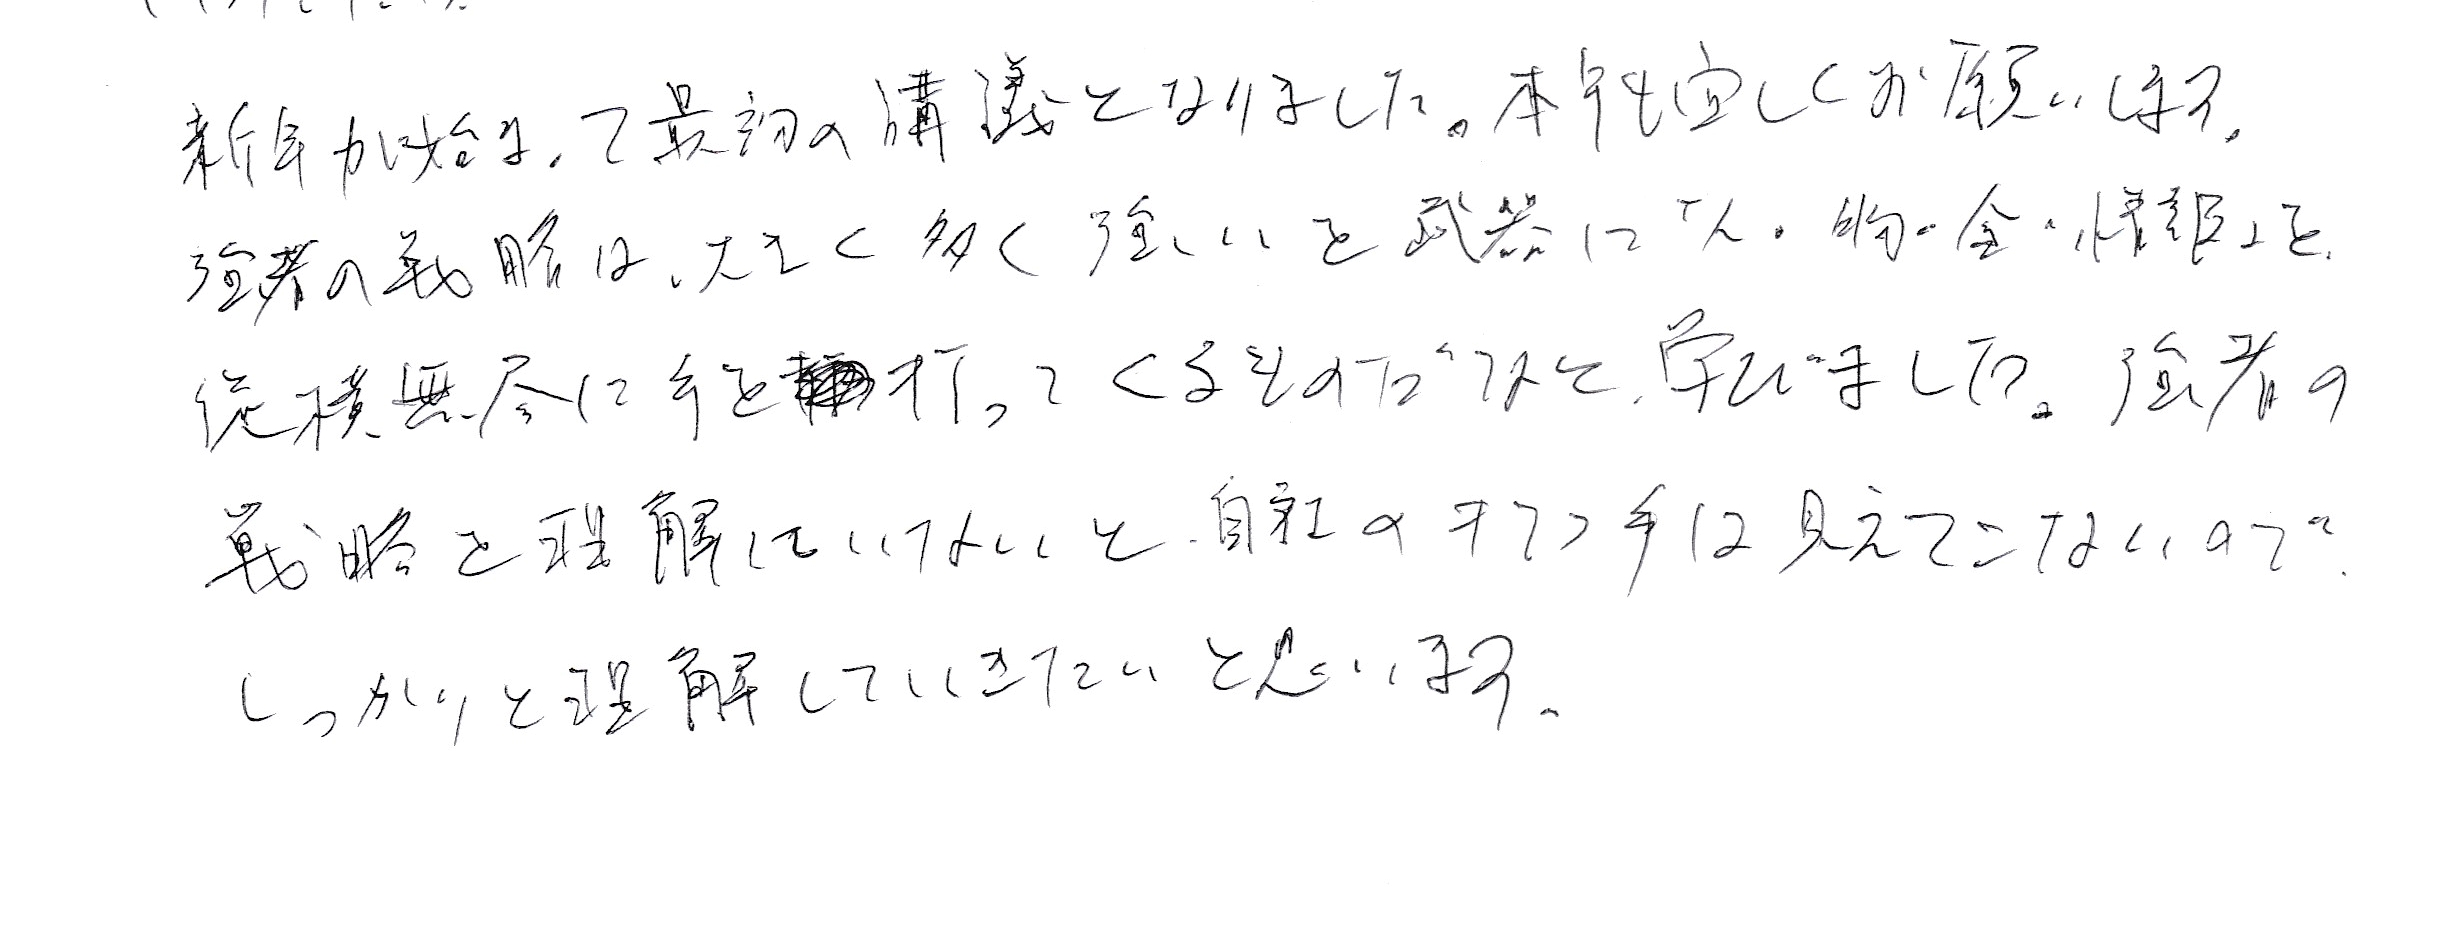 新年が始まって最初の講義となりました。本年も宜しくお願いします。
強者の戦略は、大きく多く強いを武器に「人・物・金・情報」を
従横無尽に手を打ってくるものだなと、学びました。強者の
戦略を理解していないと、自社の打つ手は見えてこないので、
しっかりと理解していきたいと思います。